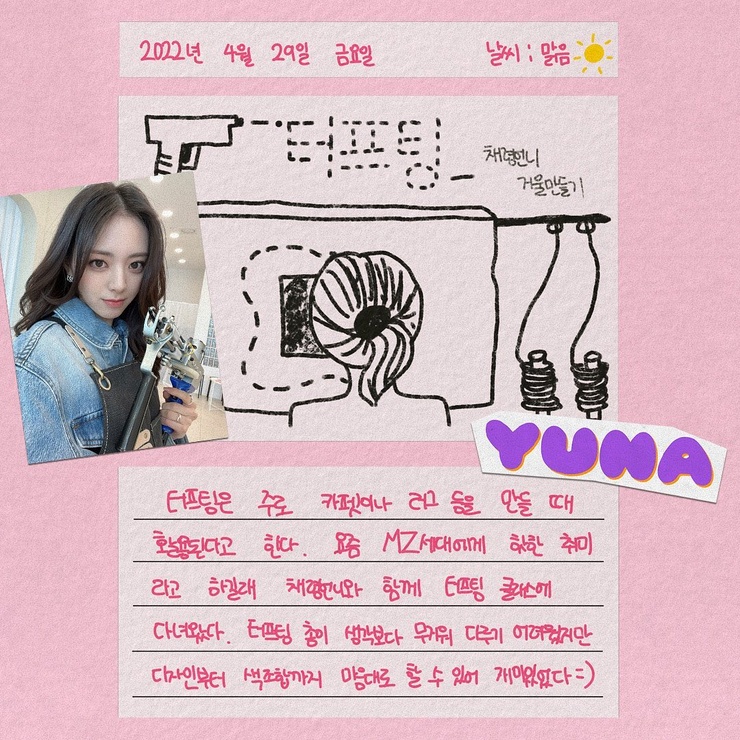 2022년 4월 29일 금요일 날씨 : 맑음
터프팅
채령언니
거울만들기
YUNA
터프팅은 주로 카펫이나 러그 등을 만들 때
활용된다고 한다. 요즘 MZ세대에게 힙한 취미
라고 하길래 채령언니와 함께 터프팅 클래스에
다녀왔다. 터프팅 총이 생각보다 무거워 다루기 어려웠지만
디자인부터 색조합까지 마음대로 할 수 있어 재미있었다=)